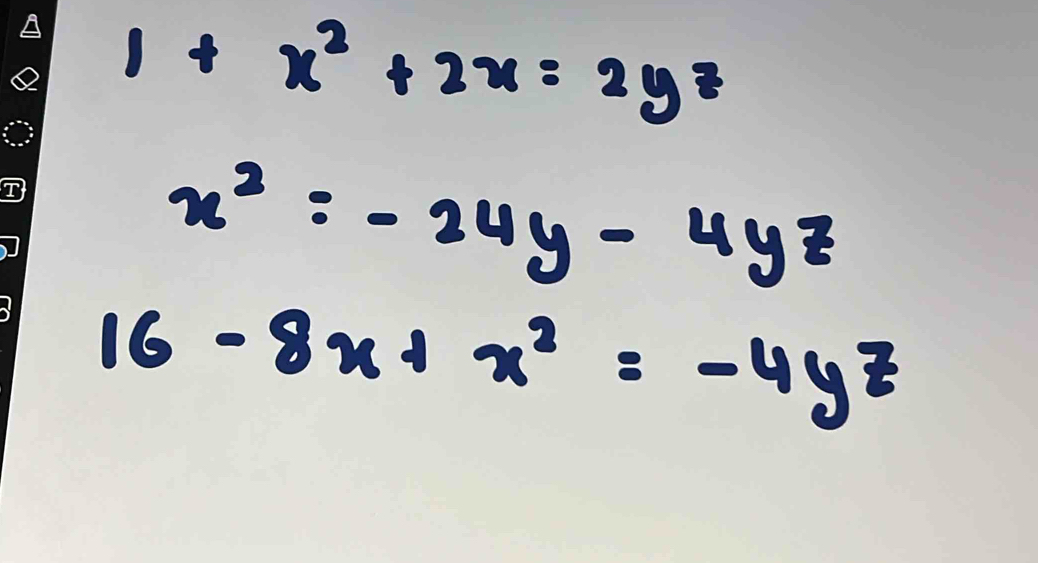 1 + x² + 2x = 2yz
x² = - 24y - 4yz
16 - 8x + x² = -4yz